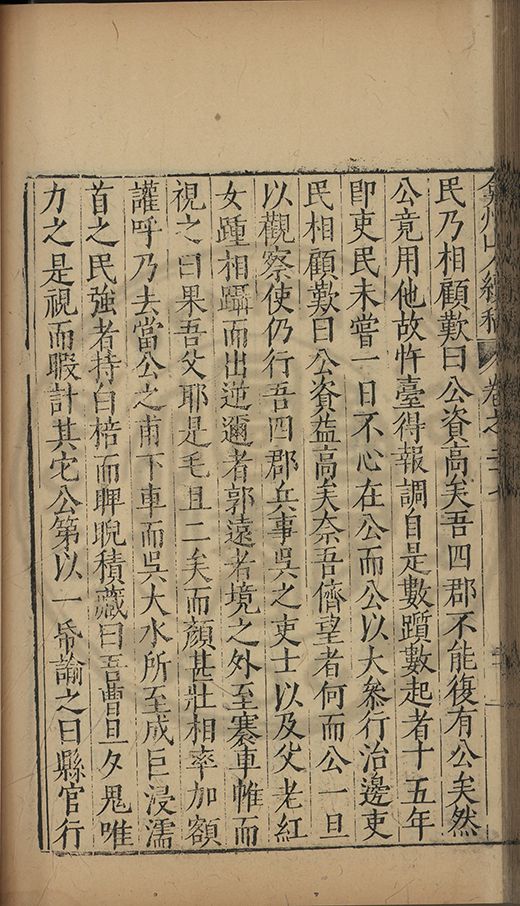 弇州山人續稿 卷之三十七
民乃相顧歎曰公資高矣吾四郡不能復有公矣然
公竟用他故忤臺得報調自是數躓數起者十五年
即吏民未嘗一日不心在公而公以大叅行治邊吏
民相顧歎曰公資益高矣奈吾儕望者何而公一旦
以觀察使仍行吾四郡兵事吳之吏士以及父老紅
女踵相躡而出逆邇者郭遠者境之外至褰車帷而
視之曰果吾父耶是毛且二矣而顏甚壯相率加額
讙呼乃去當公之甫下車而吳大水所至成巨浸濡
首之民強者持白棓而睥睨積藏曰吾曹旦夕鬼唯
力之是視而暇計其它公第以一帋諭之曰縣官行